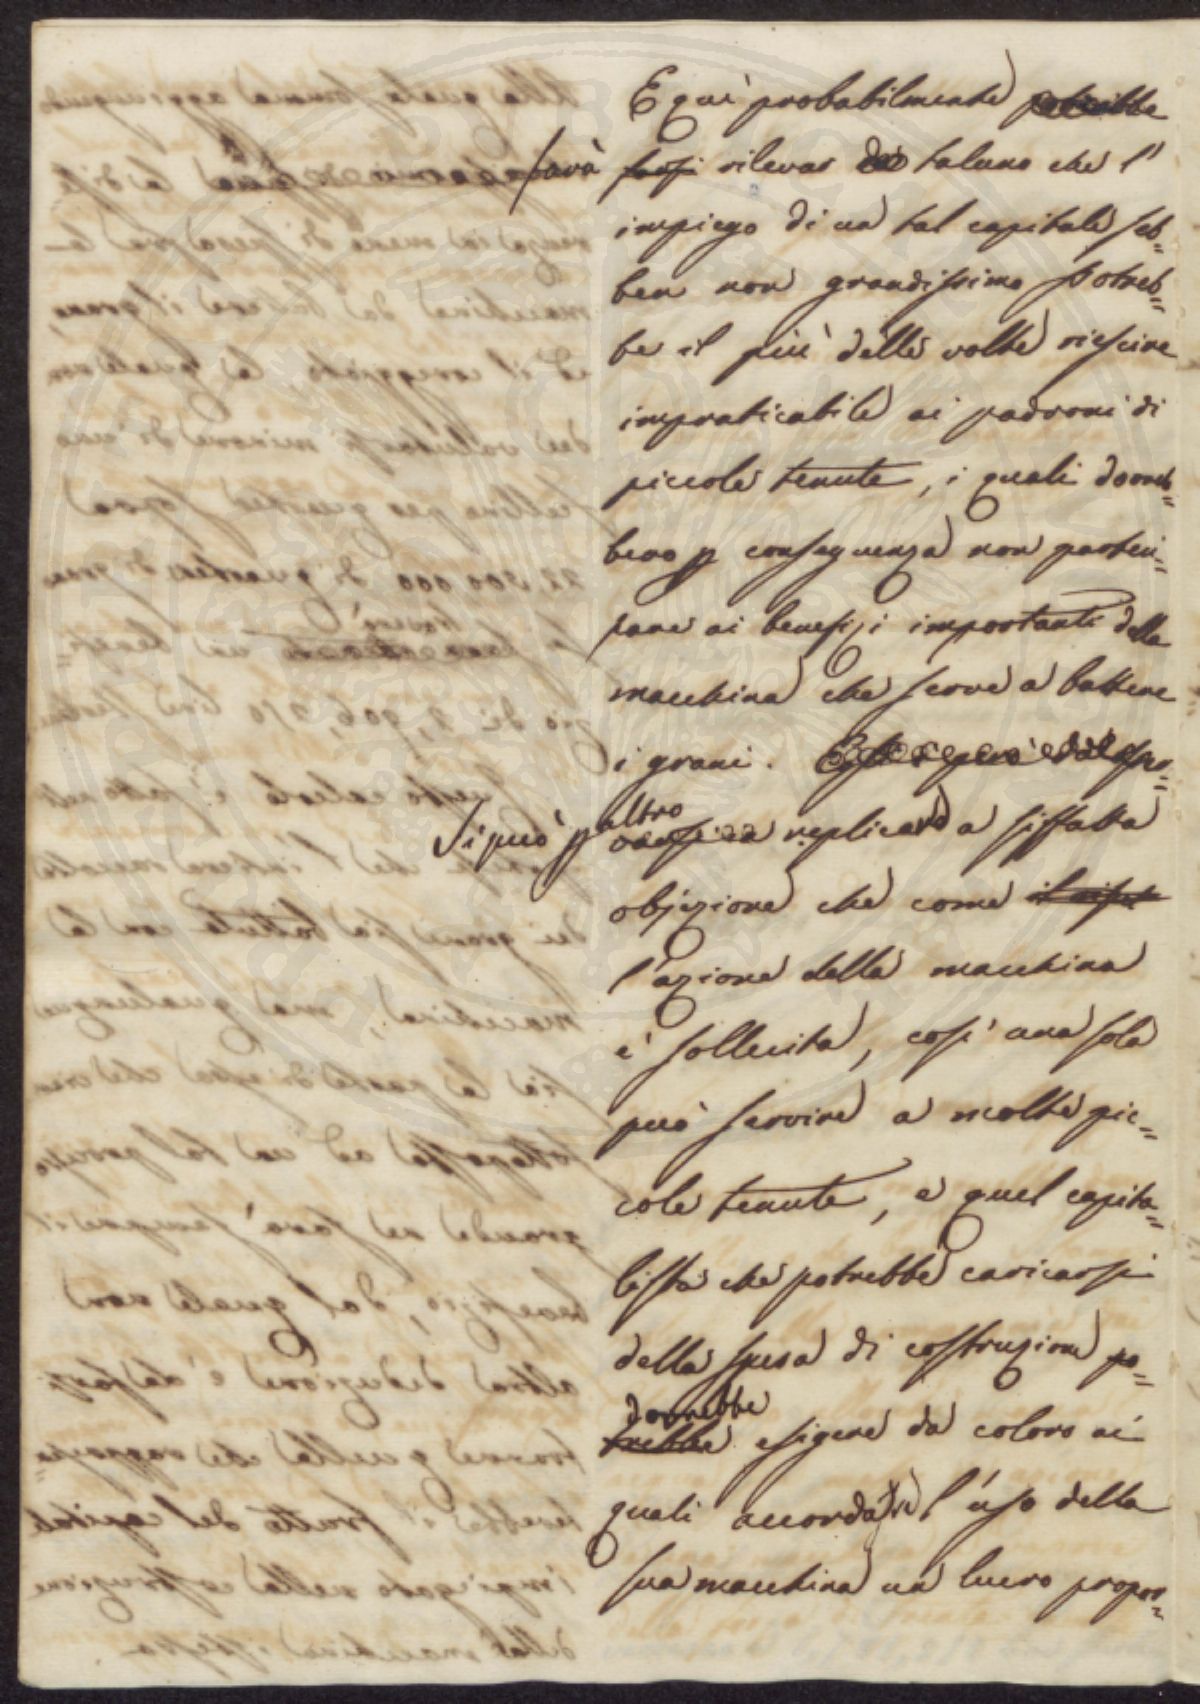 E quì probabilmente potrebbe
farà farsi rilevar da taluno che l'
impiego di un tal capitale seb=
ben non grandissimo potreb=
be il più delle volte riescire
impraticabile ai padroni di
piccole tenute, i quali dovreb=
bero p conseguenza non parteci=
pare ai benefizj importanti della
macchina che serve a battere
i grani.
Si può p altro replicare a siffatta
objezione che come
l'azione della macchina
è sollecita, così una sola
può servire a molte pic=
cole tenute, e quel capita=
lista che potrebbe caricarsi
della spesa di costruzione po=
dovrebbe
trebbe esigere da coloro ai
quali accorda l'uso della
sua macchina un lucro propor=